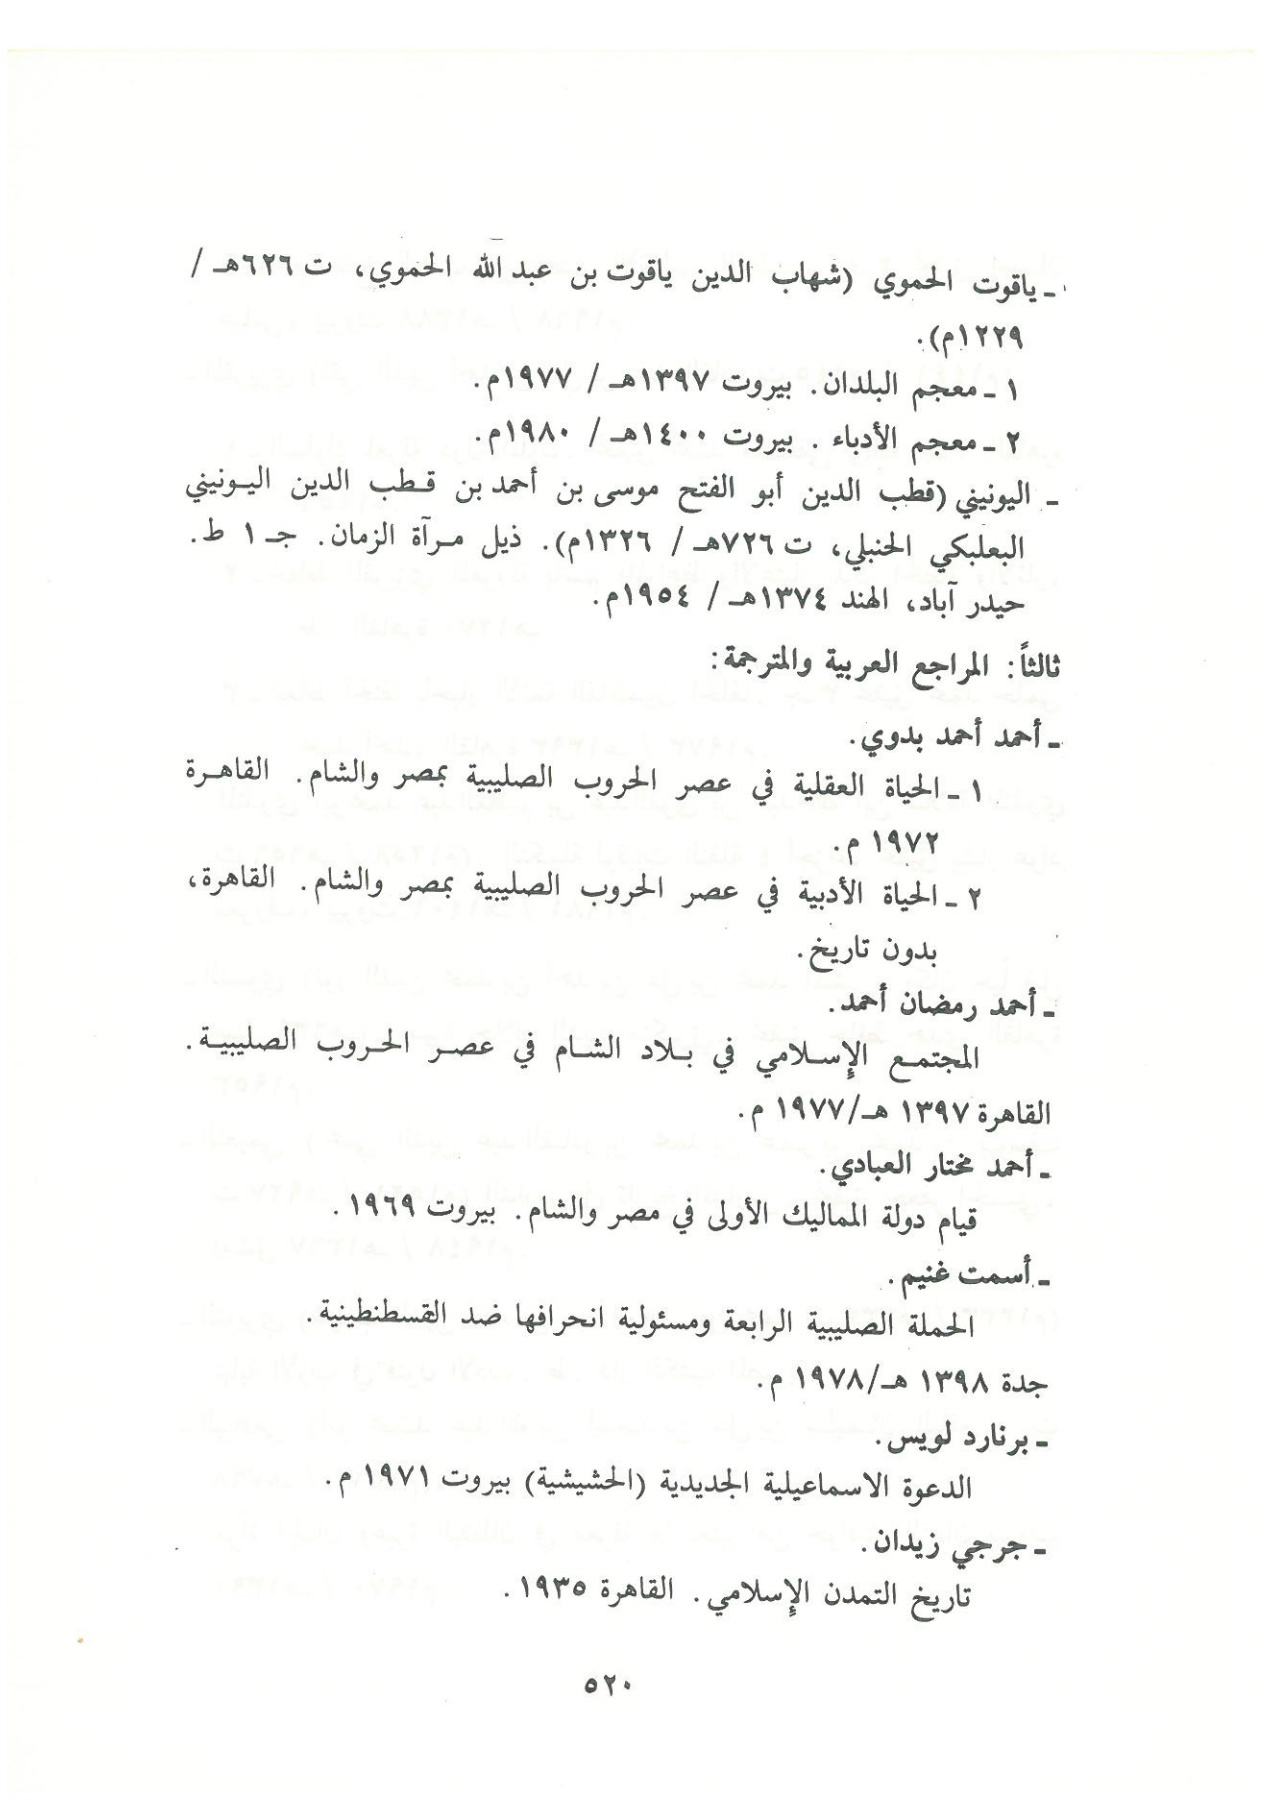 ـ ياقوت الحموي (شهاب الدين ياقوت بن عبد الله الحموي، ت ٦٢٦هـ /
١٢٢٩م).
١ ـ معجم البلدان. بيروت ١٣٩٧هـ / ١٩٧٧م.
٢ ـ معجم الأدباء . بيروت ١٤٠٠هـ / ١٩٨٠م.
ـ اليونيني (قطب الدين أبو الفتح موسى بن أحمد بن قطب الدين اليونيني
البعلبكي الحنبلي، ت ٧٢٦هـ / ١٣٢٦م). ذيل مرآة الزمان. جـ ١ ط.
حيدر آباد، الهند ١٣٧٤هـ / ١٩٥٤م.
ثالثاً: المراجع العربية والمترجمة:
ـ أحمد أحمد بدوي.
١ ـ الحياة العقلية في عصر الحروب الصليبية بمصر والشام. القاهرة
١٩٧٢ م.
٢ ـ الحياة الأدبية في عصر الحروب الصليبية بمصر والشام. القاهرة،
بدون تاريخ.
ـ أحمد رمضان أحمد.
المجتمع الإسلامي في بلاد الشام في عصر الحروب الصليبية.
القاهرة ١٣٩٧ هـ/١٩٧٧ م.
ـ أحمد مختار العبادي.
قيام دولة المماليك الأولى في مصر والشام. بيروت ١٩٦٩ .
ـ أسمت غنيم.
الحملة الصليبية الرابعة ومسئولية انحرافها ضد القسطنطينية.
جدة ١٣٩٨ هـ/١٩٧٨ م.
ـ برنارد لويس.
الدعوة الاسماعيلية الجديدية (الحشيشية) بيروت ١٩٧١ م.
ـ جرجي زيدان.
تاريخ التمدن الإسلامي. القاهرة ١٩٣٥ .
٥٢٠